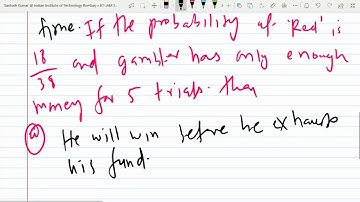 Santosh Kumar @ Indian Institute of Technology Bombay
time. If the probability of 'Red' is
18/38 and gambler has only enough
money for 5 trials. then
(a) He will win before he exhausts
his fund.